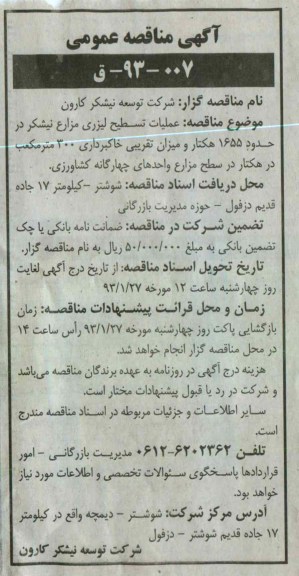 آگهی مناقصه عمومی
۰۰۷-۹۳- ق
نام مناقصه گزار: شرکت توسعه نیشکر کارون
موضوع مناقصه: عملیات تسطیح لیزری مزارع نیشکر در
حدود ۱۶۵۵ هکتار و میزان تقریبی خاکبرداری ۳۰۰ مترمکعب
در هکتار در سطح مزارع واحدهای چهارگانه کشاورزی.
محل دریافت اسناد مناقصه: شوشتر -کیلومتر ۱۷ جاده
قدیم دزفول - حوزه مدیریت بازرگانی
تضمین شرکت در مناقصه: ضمانت نامه بانکی یا چک
تضمین بانکی به مبلغ ۵۰/۰۰۰/۰۰۰ ریال به نام مناقصه گزار.
تاریخ تحویل اسناد مناقصه: از تاریخ درج آگهی لغایت
روز چهارشنبه ساعت ۱۲ مورخه ۹۳/۱/۲۷
زمان و محل قرائت پیشنهادات مناقصه: زمان
بازگشایی پاکت روز چهارشنبه مورخه ۹۳/۱/۲۷ رأس ساعت ۱۴
در محل مناقصه گزار انجام خواهد شد.
هزینه درج آگهی در روزنامه به عهده برندگان مناقصه می‌باشد
و شرکت در رد یا قبول پیشنهادات مختار است.
سایر اطلاعات و جزئیات مربوطه در اسناد مناقصه مندرج
است.
تلفن ۶۲۰۲۳۶۲-۰۶۱۲ مدیریت بازرگانی - امور
قراردادها پاسخگوی سئوالات تخصصی و اطلاعات مورد نیاز
خواهد بود.
آدرس مرکز شرکت: شوشتر - دیمچه واقع در کیلومتر
۱۷ جاده قدیم شوشتر - دزفول
شرکت توسعه نیشکر کارون